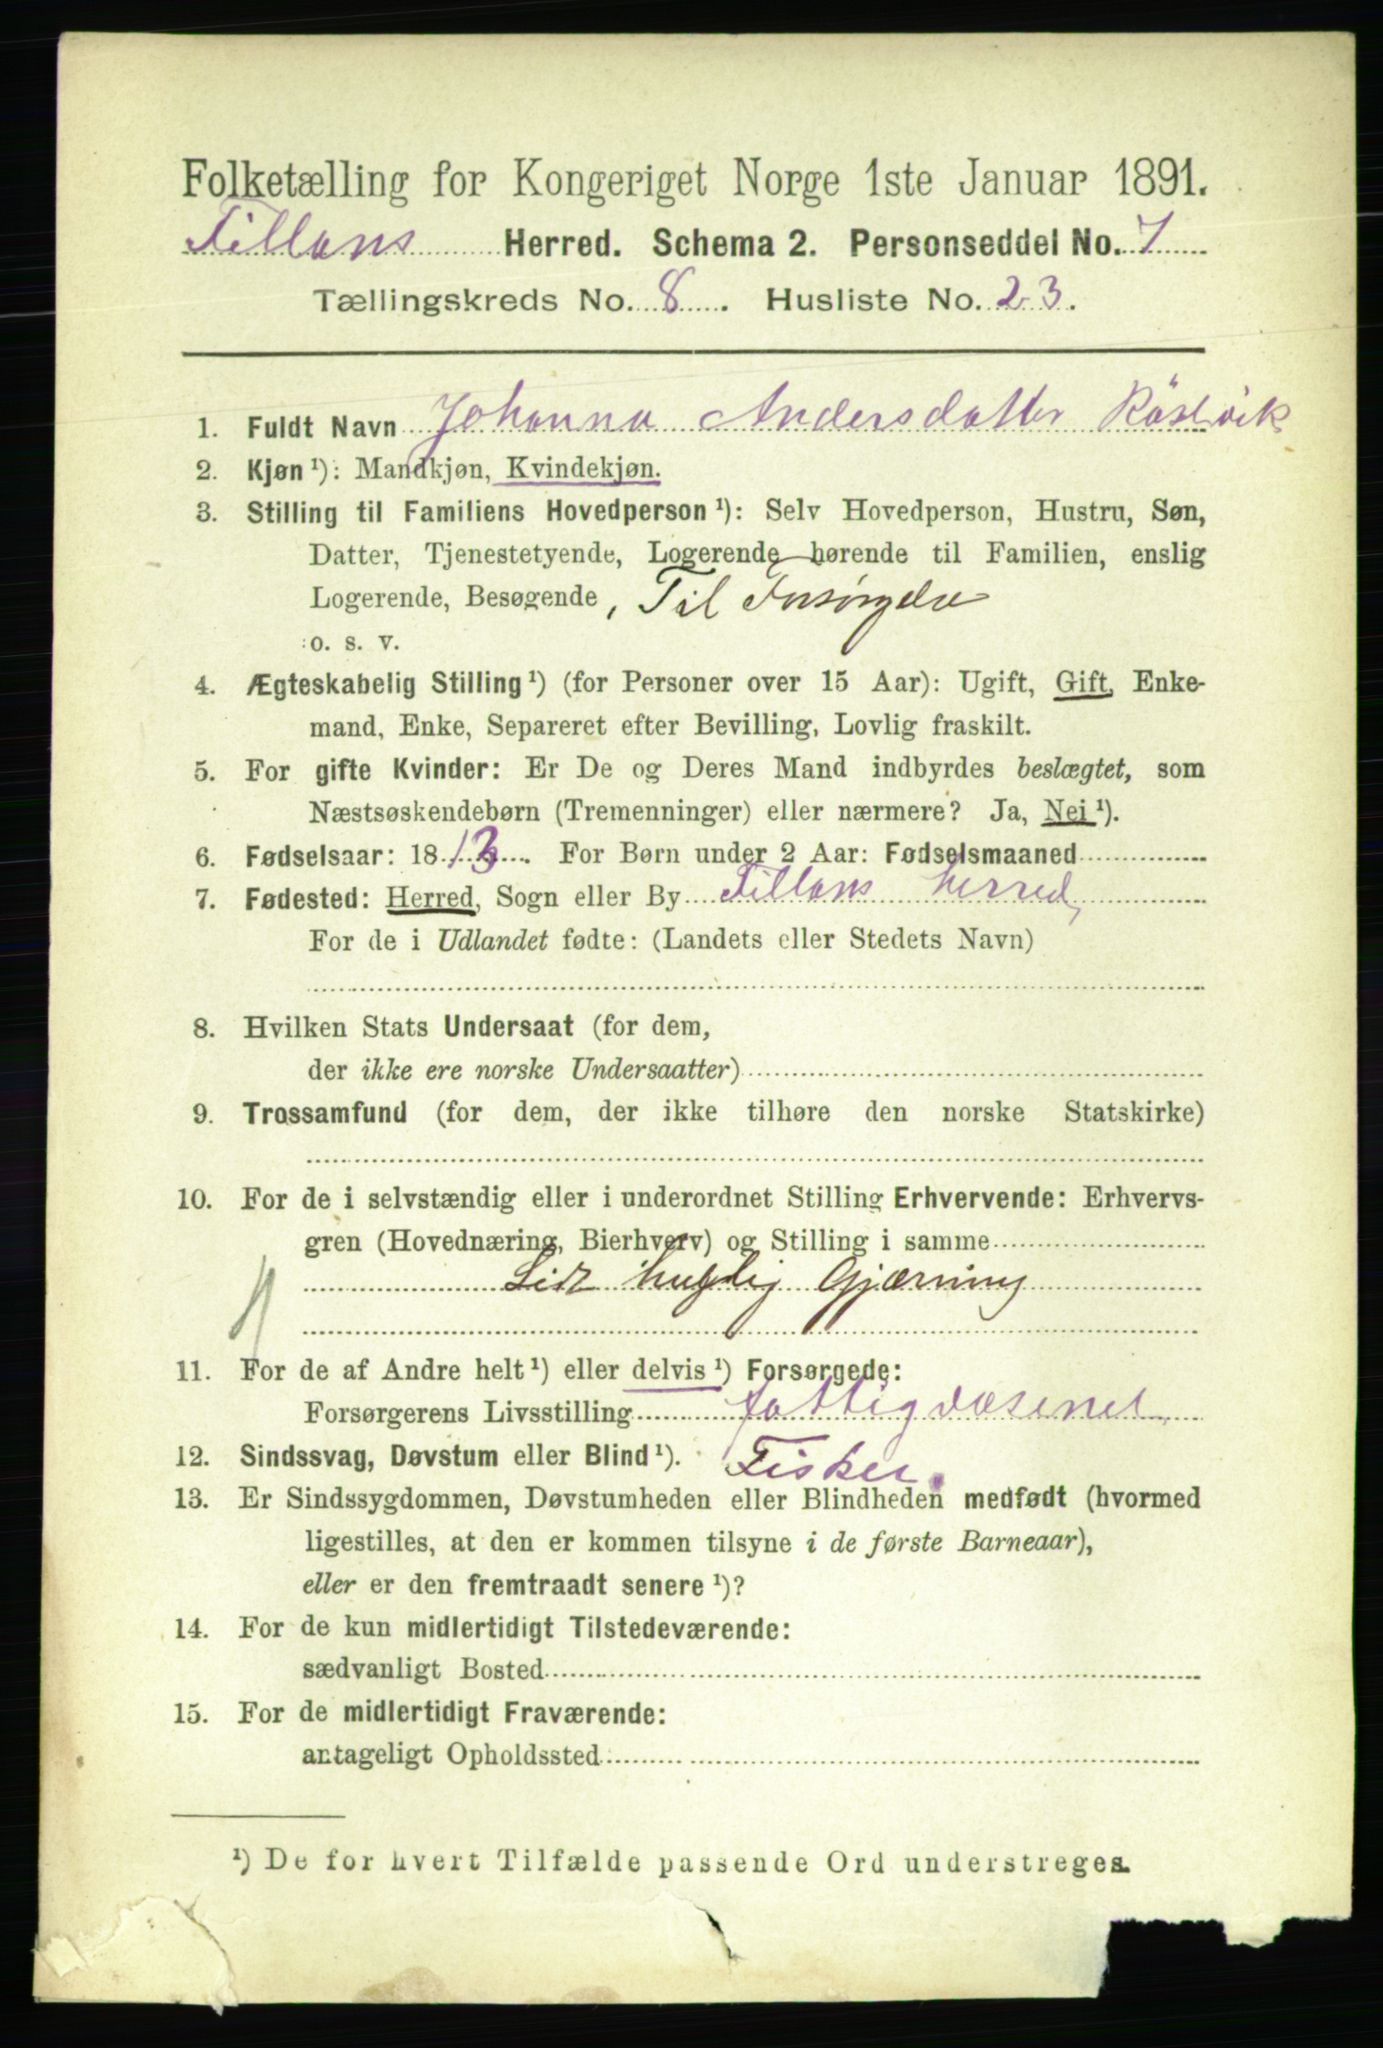 Folketælling for Kongeriget Norge 1ste Januar 1891.
Fillans Herred. Schema 2. Personseddel No. 7
Tællingskreds No. 8. Husliste No. 23.
1. Fuldt Navn Johanna Andersdatter Röstvik
2. Kjøn¹): Mandkjøn, Kvindekjøn.
3. Stilling til Familiens Hovedperson¹): Selv Hovedperson, Hustru, Søn,
Datter, Tjenestetyende, Logerende hørende til Familien, enslig
Logerende, Besøgende, Til Forsørgelse
o. s. v.
4. Ægteskabelig Stilling¹) (for Personer over 15 Aar): Ugift, Gift, Enke-
mand, Enke, Separeret efter Bevilling, Lovlig fraskilt.
5. For gifte Kvinder: Er De og Deres Mand indbyrdes beslægtet, som
Næstsøskendebørn (Tremenninger) eller nærmere? Ja, Nei¹).
6. Fødselsaar: 1813. For Børn under 2 Aar: Fødselsmaaned
7. Fødested: Herred, Sogn eller By Fillans herred,
For de i Udlandet fødte: (Landets eller Stedets Navn)
8. Hvilken Stats Undersaat (for dem,
der ikke ere norske Undersaatter)
9. Trossamfund (for dem, der ikke tilhøre den norske Statskirke)
10. For de i selvstændig eller i underordnet Stilling Erhvervende: Erhvervs-
gren (Hovednæring, Bierhverv) og Stilling i samme
Lidt huslig Gjærning
11. For de af Andre helt¹) eller delvis¹) Forsørgede:
Forsørgerens Livsstilling fattigvæsenet
12. Sindssvag, Døvstum eller Blind¹). Fisker.
13. Er Sindssygdommen, Døvstumheden eller Blindheden medfødt (hvormed
ligestilles, at den er kommen tilsyne i de første Barneaar),
eller er den fremtraadt senere¹)?
14. For de kun midlertidigt Tilstedeværende:
sædvanligt Bosted
15. For de midlertidigt Fraværende:
antageligt Opholdssted
¹) De for hvert Tilfælde passende Ord understreges.